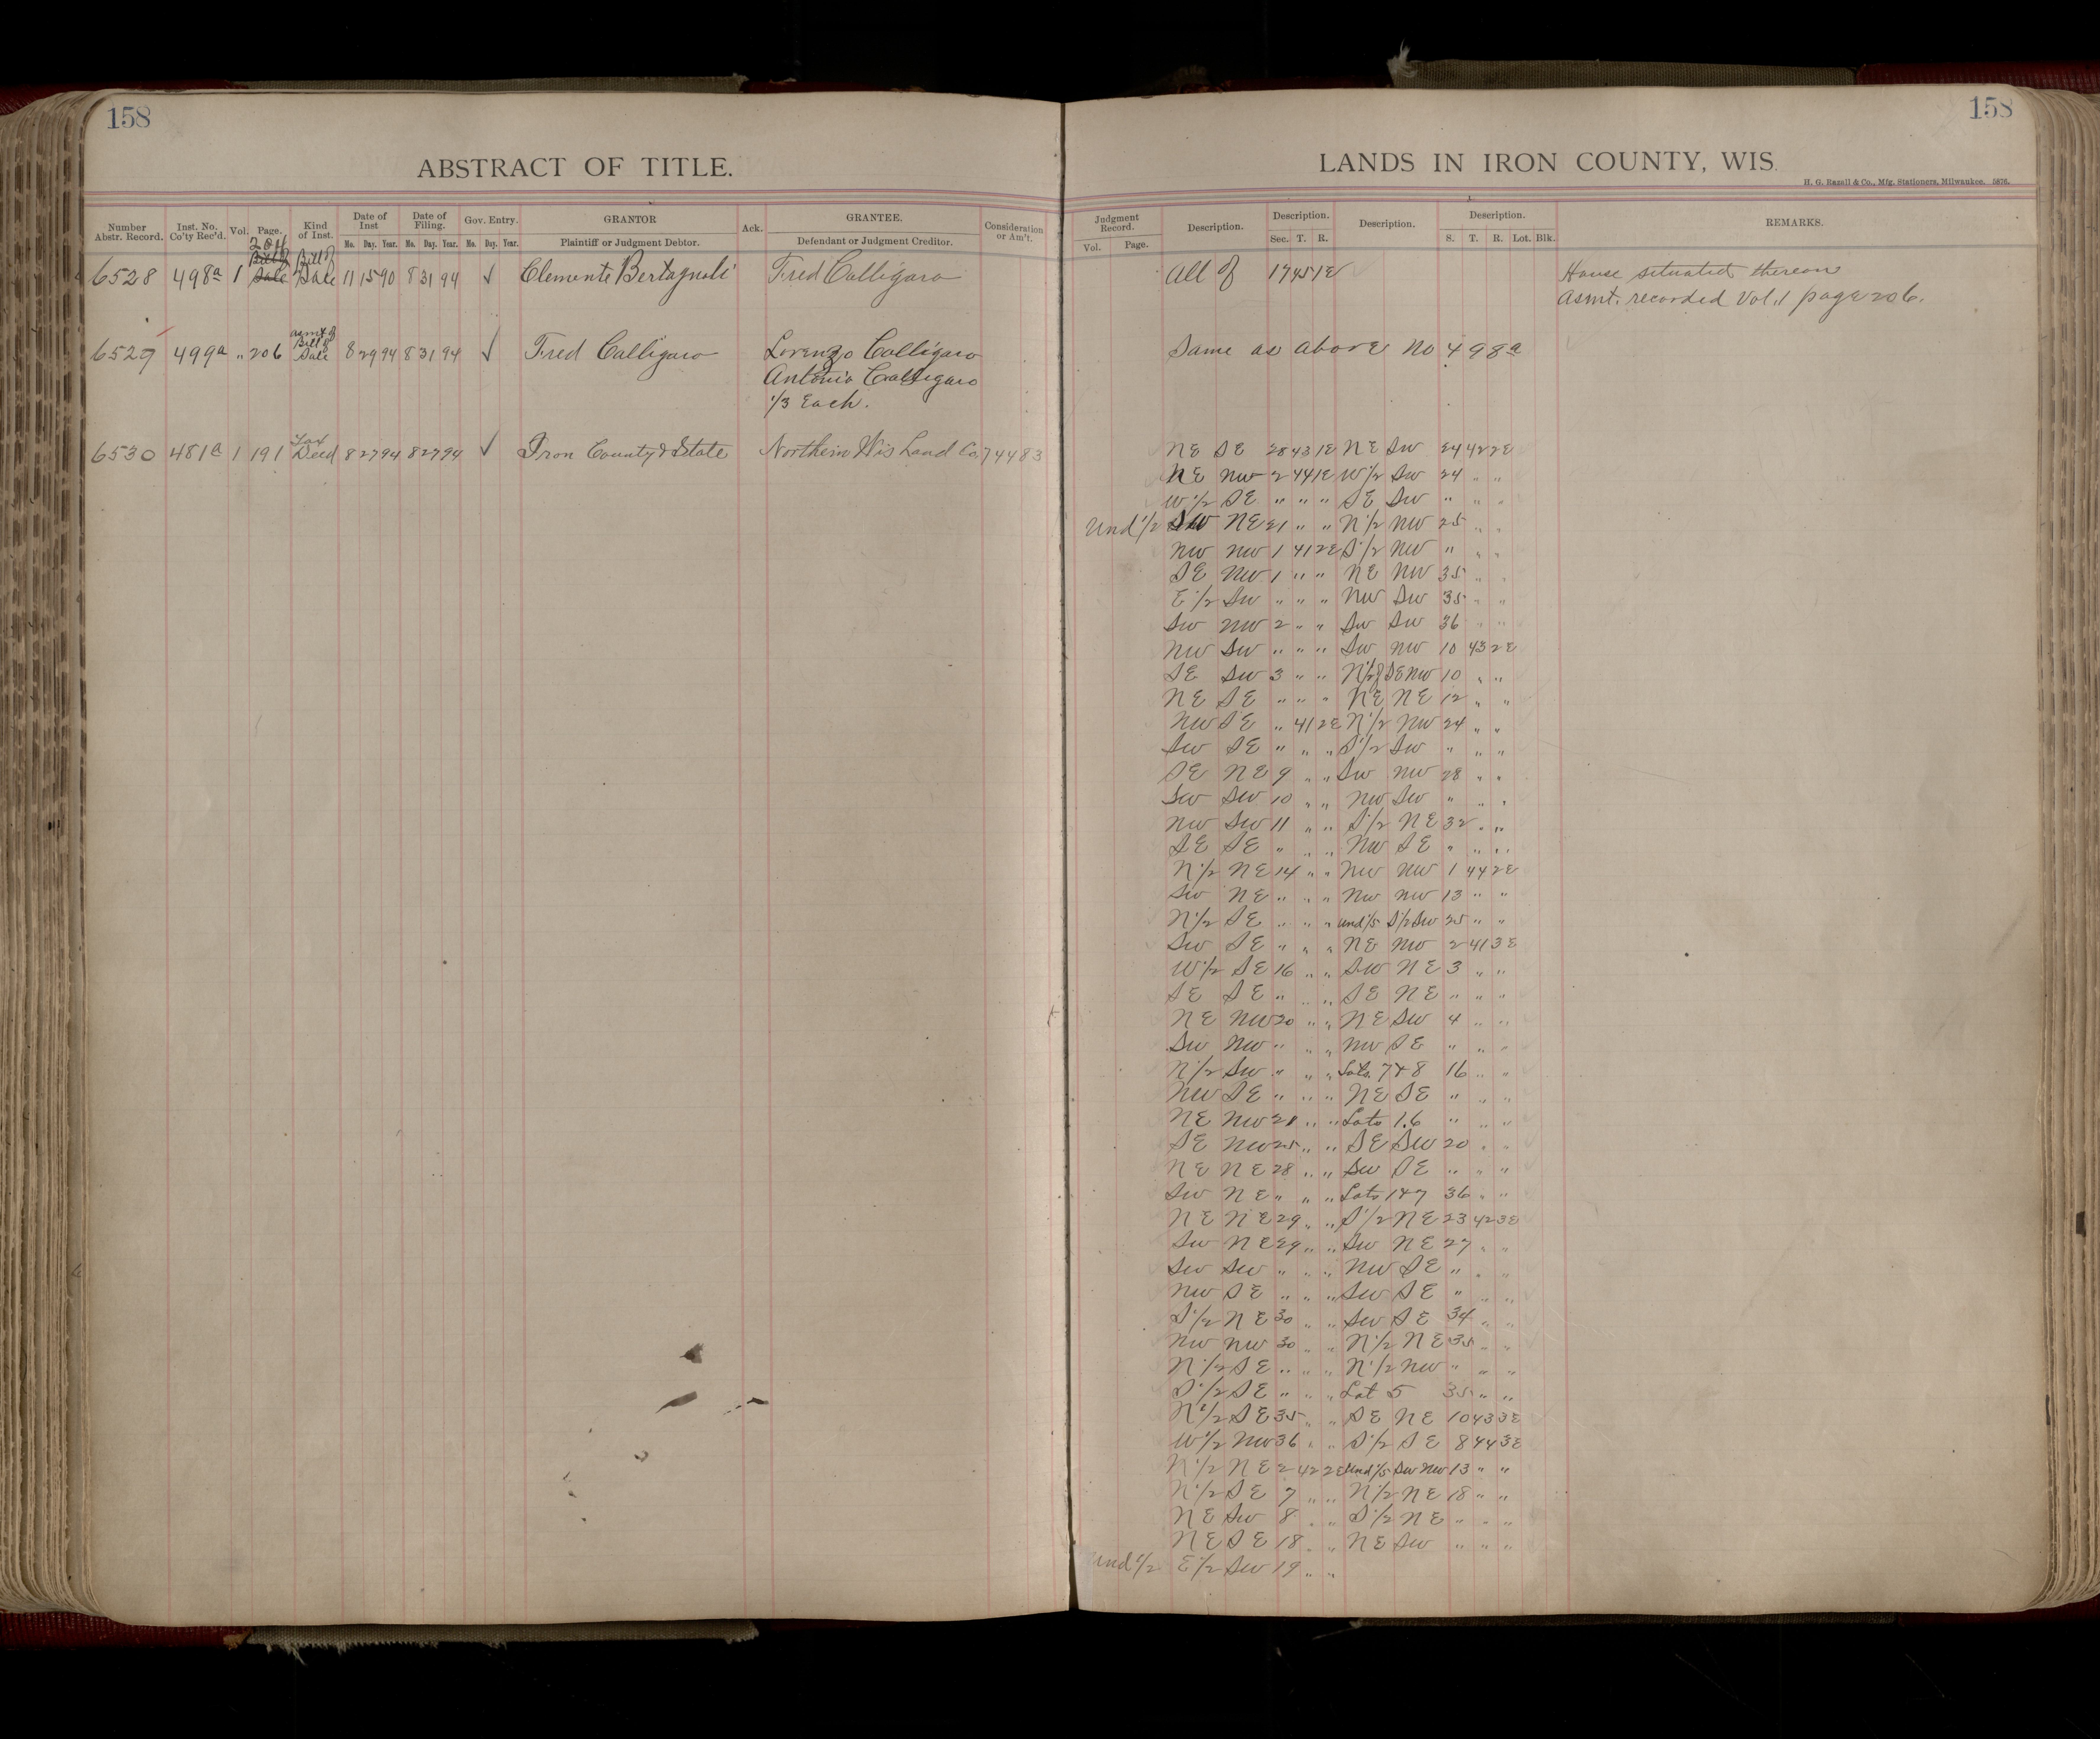 158
158
ABSTRACT OF TITLE.
LANDS IN IRON COUNTY, WIS.
H. G. Razall & Co., Mfg. Stationers, Milwaukee. 5876.
Number Abstr. Record. Inst. No. Co'ty Rec'd. Vol. Page. Kind of Inst. Date of Inst Mo. Day. Year. Date of Filing. Mo. Day. Year. Gov. Entry. Mo. Day. Year. GRANTOR Plaintiff or Judgment Debtor. Ack. GRANTEE. Defendant or Judgment Creditor. Consideration or Am't.
Judgment Record. Vol. Page. Description. Description. Sec. T. R. Description. Description. S. T. R. Lot. Blk. REMARKS.
204
Bill of Bill of
6528 498a 1 Sale Sale 11 15 90 8 31 94 √ Clemente Bertagnoli Fred Calligaro All of 17 45 1E House situated thereon
Asmt. recorded Vol. 1 page 206.
asmt of
Bill of
6529 499a " 206 Sale 8 29 94 8 31 94 √ Fred Calligaro Lorenzo Calligaro Same as above No 498a
Antonio Calligaro
1/3 Each.
Tax
6530 481a 1 191 Deed 8 27 94 8 27 94 √ Iron County & State Northern Wis Land Co. 744 83 NE SE 28 43 1E NE SW 24 42 2E
NE NW 2 44 1E W 1/2 SW 24 " "
W 1/2 SE " " " SE SW " " "
Und 1/2 SW NE 21 " " N 1/2 NW 25 " "
NW NW 1 41 2E S 1/2 NW " " "
SE NW 1 " " NE NW 35 " "
E 1/2 SW " " " NW SW 35 " "
SW NW 2 " " SW SW 36 " "
NW SW " " " SW NW 10 43 2E
SE SW 3 " " N 1/2 of SE NW 10 " "
NE SE " " " NE NE 12 " "
NW SE " 41 2E N 1/2 NW 24 " "
SW SE " " " S 1/2 SW " " "
SE NE 9 " " SW NW 28 " "
SW SW 10 " " NW SW " " "
NW SW 11 " " S 1/2 NE 32 " "
SE SE " " " NW SE " " "
N 1/2 NE 14 " " NW NW 1 44 2E
SW NE " " " NW NW 13 " "
N 1/2 SE " " " und 1/5 S 1/2 SW 25 " "
SW SE " " " NE NW 2 41 3E
W 1/2 SE 16 " " SW NE 3 " "
SE SE " " " SE NE " " "
NE NW 20 " " NE SW 4 " "
SW NW " " " NW SE " " "
N 1/2 SW " " " Lots 7 & 8 16 " "
NW SE " " " NE SE " " "
NE NW 21 " " Lots 1.6 " " "
SE NW 25 " " SE SW 20 " "
NE NE 28 " " SW SE " " "
SW NE " " " Lots 1 & 7 36 " "
NE NE 29 " " S 1/2 NE 23 42 3E
SW NE 29 " " SW NE 27 " "
SW SW " " " NW SE " " "
NW SE " " " SW SE " " "
S 1/2 NE 30 " " SW SE 34 " "
NW NW 30 " " N 1/2 NE 35 " "
N 1/2 SE " " " N 1/2 NW " " "
S 1/2 SE " " " Lot 5 35 " "
N 1/2 SE 35 " " SE NE 10 43 3E
W 1/2 NW 36 " " S 1/2 SE 8 44 3E
N 1/2 NE 2 42 2E Und 1/5 SW NW 13 " "
N 1/2 SE 7 " " N 1/2 NE 18 " "
NE SW 8 " " S 1/2 NE " " "
NE SE 18 " " NE SW " " "
Und 1/2 E 1/2 SW 19 " "